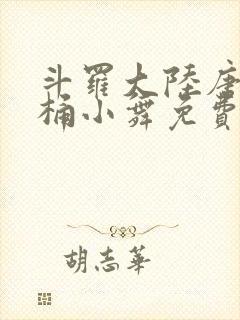 斗羅大陸唐
桶小舞免費
胡志華